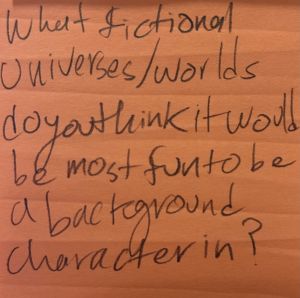 What fictional
Universes/worlds
do you think it would
be most fun to be
a background
character in?